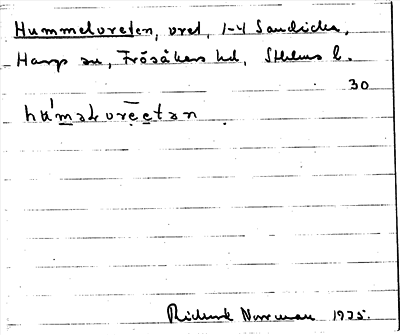 Hummelvreten, vred, 1-4 Sandika,
Hargs sn, Frösåkers hd, Sthlms l.
30
hu̇məlvre̱e̱tən .
Rickard Norrman 1935.